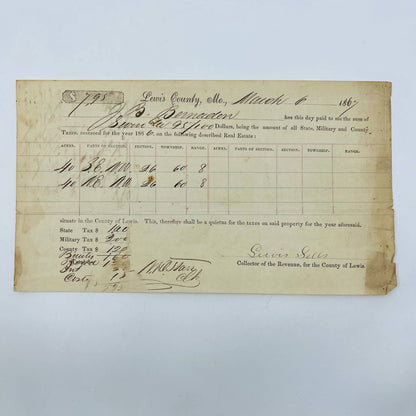 $ 7.95 Lewis County, Mo., March 6 1867
J B Bernadon has this day paid to me the sum of
Seven & 95/100 Dollars, being the amount of all State, Military and County
Taxes, assessed for the year 1866, on the following described Real Estate:
ACRES. PARTS OF SECTION. SECTION. TOWNSHIP. RANGE. ACRES. PARTS OF SECTION. SECTION. TOWNSHIP. RANGE.
40 S.E. N.W. 26 60 8
40 N.E. N.W. 26 60 8
situate in the County of Lewis. This, therefore shall be a quietus for the taxes on said property for the year aforesaid.
State Tax $ 1.00
Military Tax $ 2.00
County Tax $ 1.20
Bounty
Int
Costs
Clk
Lewis Sells
Collector of the Revenue, for the County of Lewis.